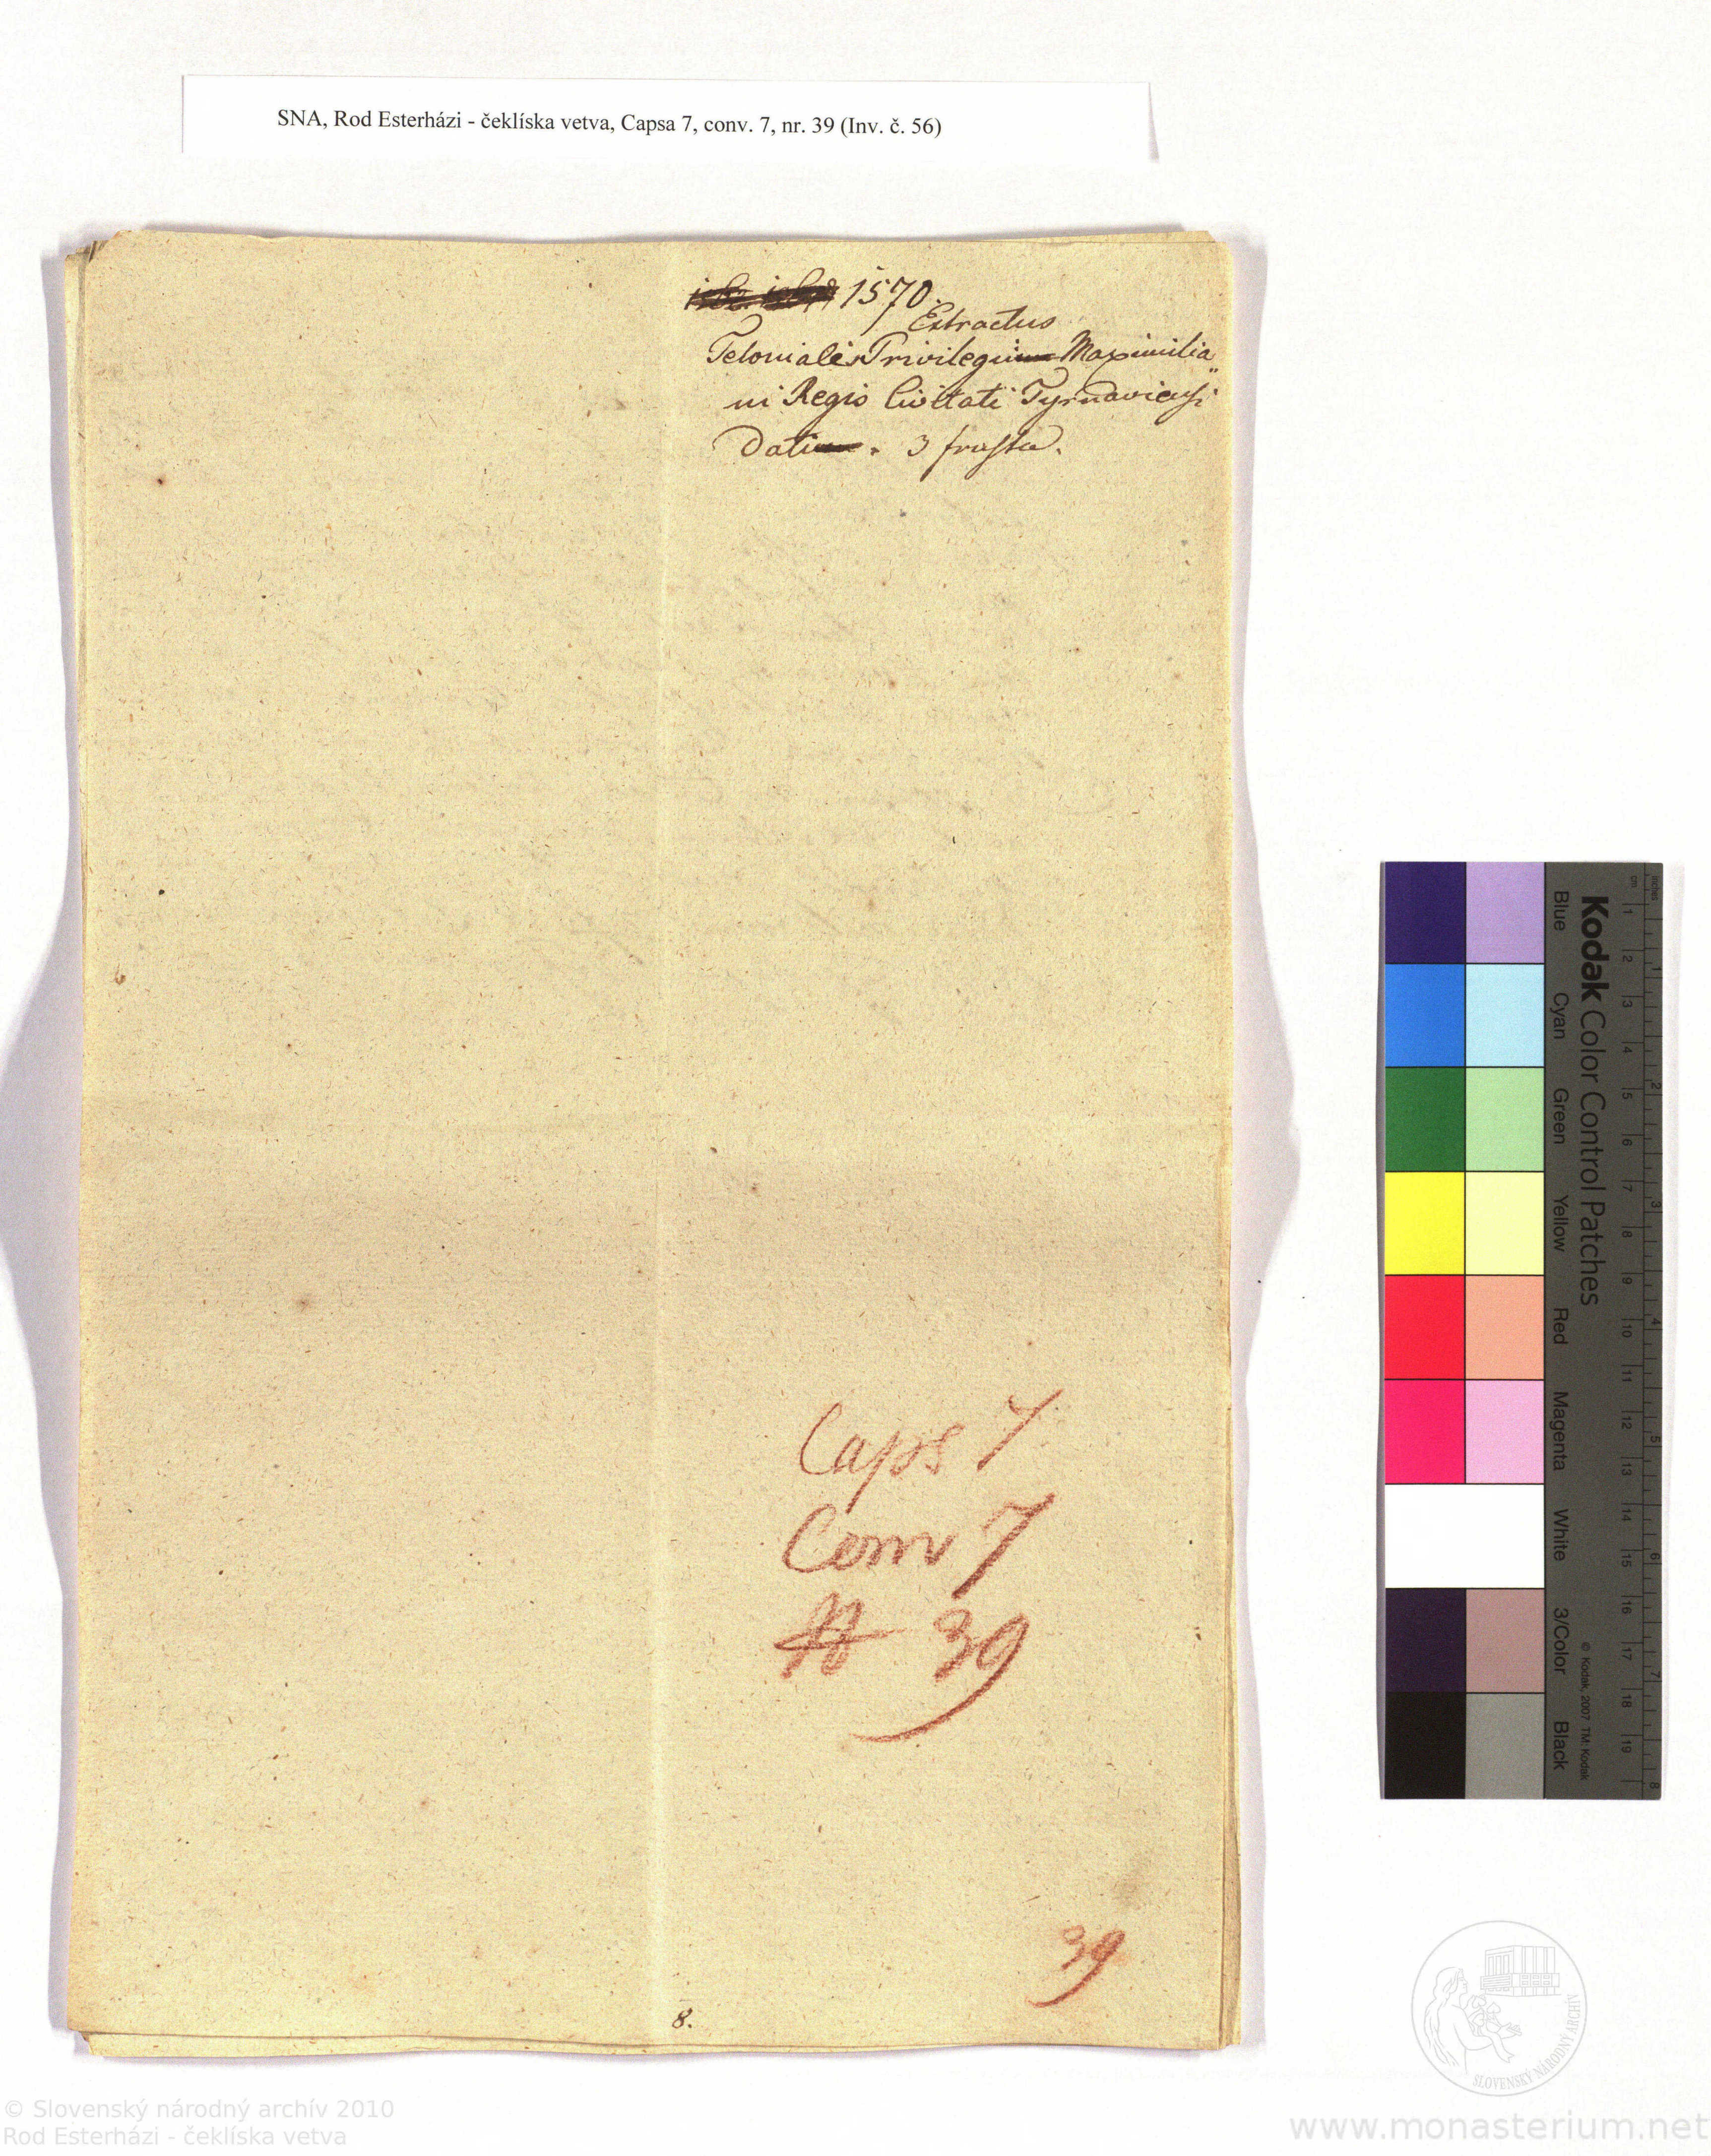 SNA, Rod Esterházi - čeklíska vetva, Capsa 7, conv. 7, nr. 39 (Inv. č. 56)
1570.
Extractus
Telonialis Privilegium Maximilia„
ni Regis Civitati Tyrnaviensi
Datum. 3 frusta.
Caps 7
Conv 7
N 39
39
8.
Kodak Color Control Patches
Blue Cyan Green Yellow Red Magenta White 3/Color Black
© Kodak, 2007 TM: Kodak
inches 1 2 3 4 5 6 7 8
cm 1 2 3 4 5 6 7 8 9 10 11 12 13 14 15 16 17 18 19
SLOVENSKÝ NÁRODNÝ ARCHÍV
© Slovenský národný archív 2010
Rod Esterházi - čeklíska vetva
www.monasterium.net